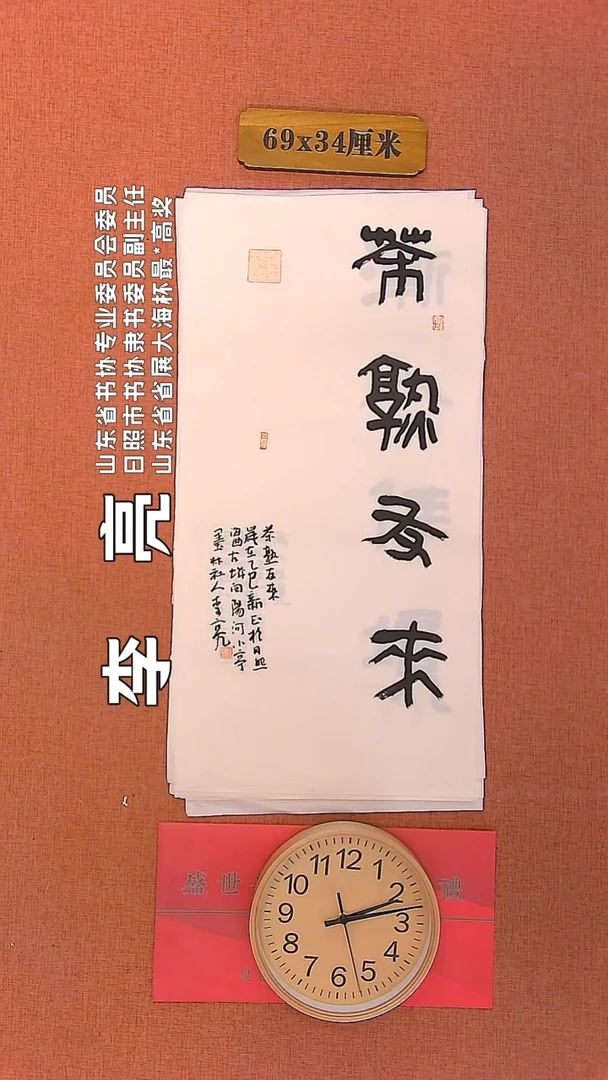 69x34厘米
茶熟友来
茶熟友來
歲在乙巳新正於日照
古城向陽河小亭
墨林社人李亮
李亮
山东省书协专业委员会委员
日照市书协隶书委员副主任
山东省省展大海杯最*高奖
盛世 禮
12
1
2
3
4
5
6
7
8
9
10
11